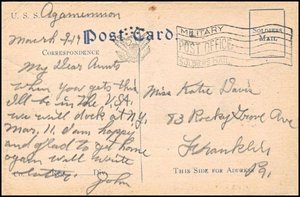 U. S. S. Agamemnon
Post Card
March 9-19
CORRESPONDENCE
My Dear Aunts
when you gets this
I'll be in the U.S.A.
we will dock at N.Y.
Mar, 11. I am happy
and glad to get home
again will write
John
MILITARY
POST OFFICE
SOLDIERS MAIL
SOLDIERS
MAIL
Miss Katie Davis
83 Rocky Grove Ave
Franklin
Pa.
THIS SIDE FOR ADDRESS